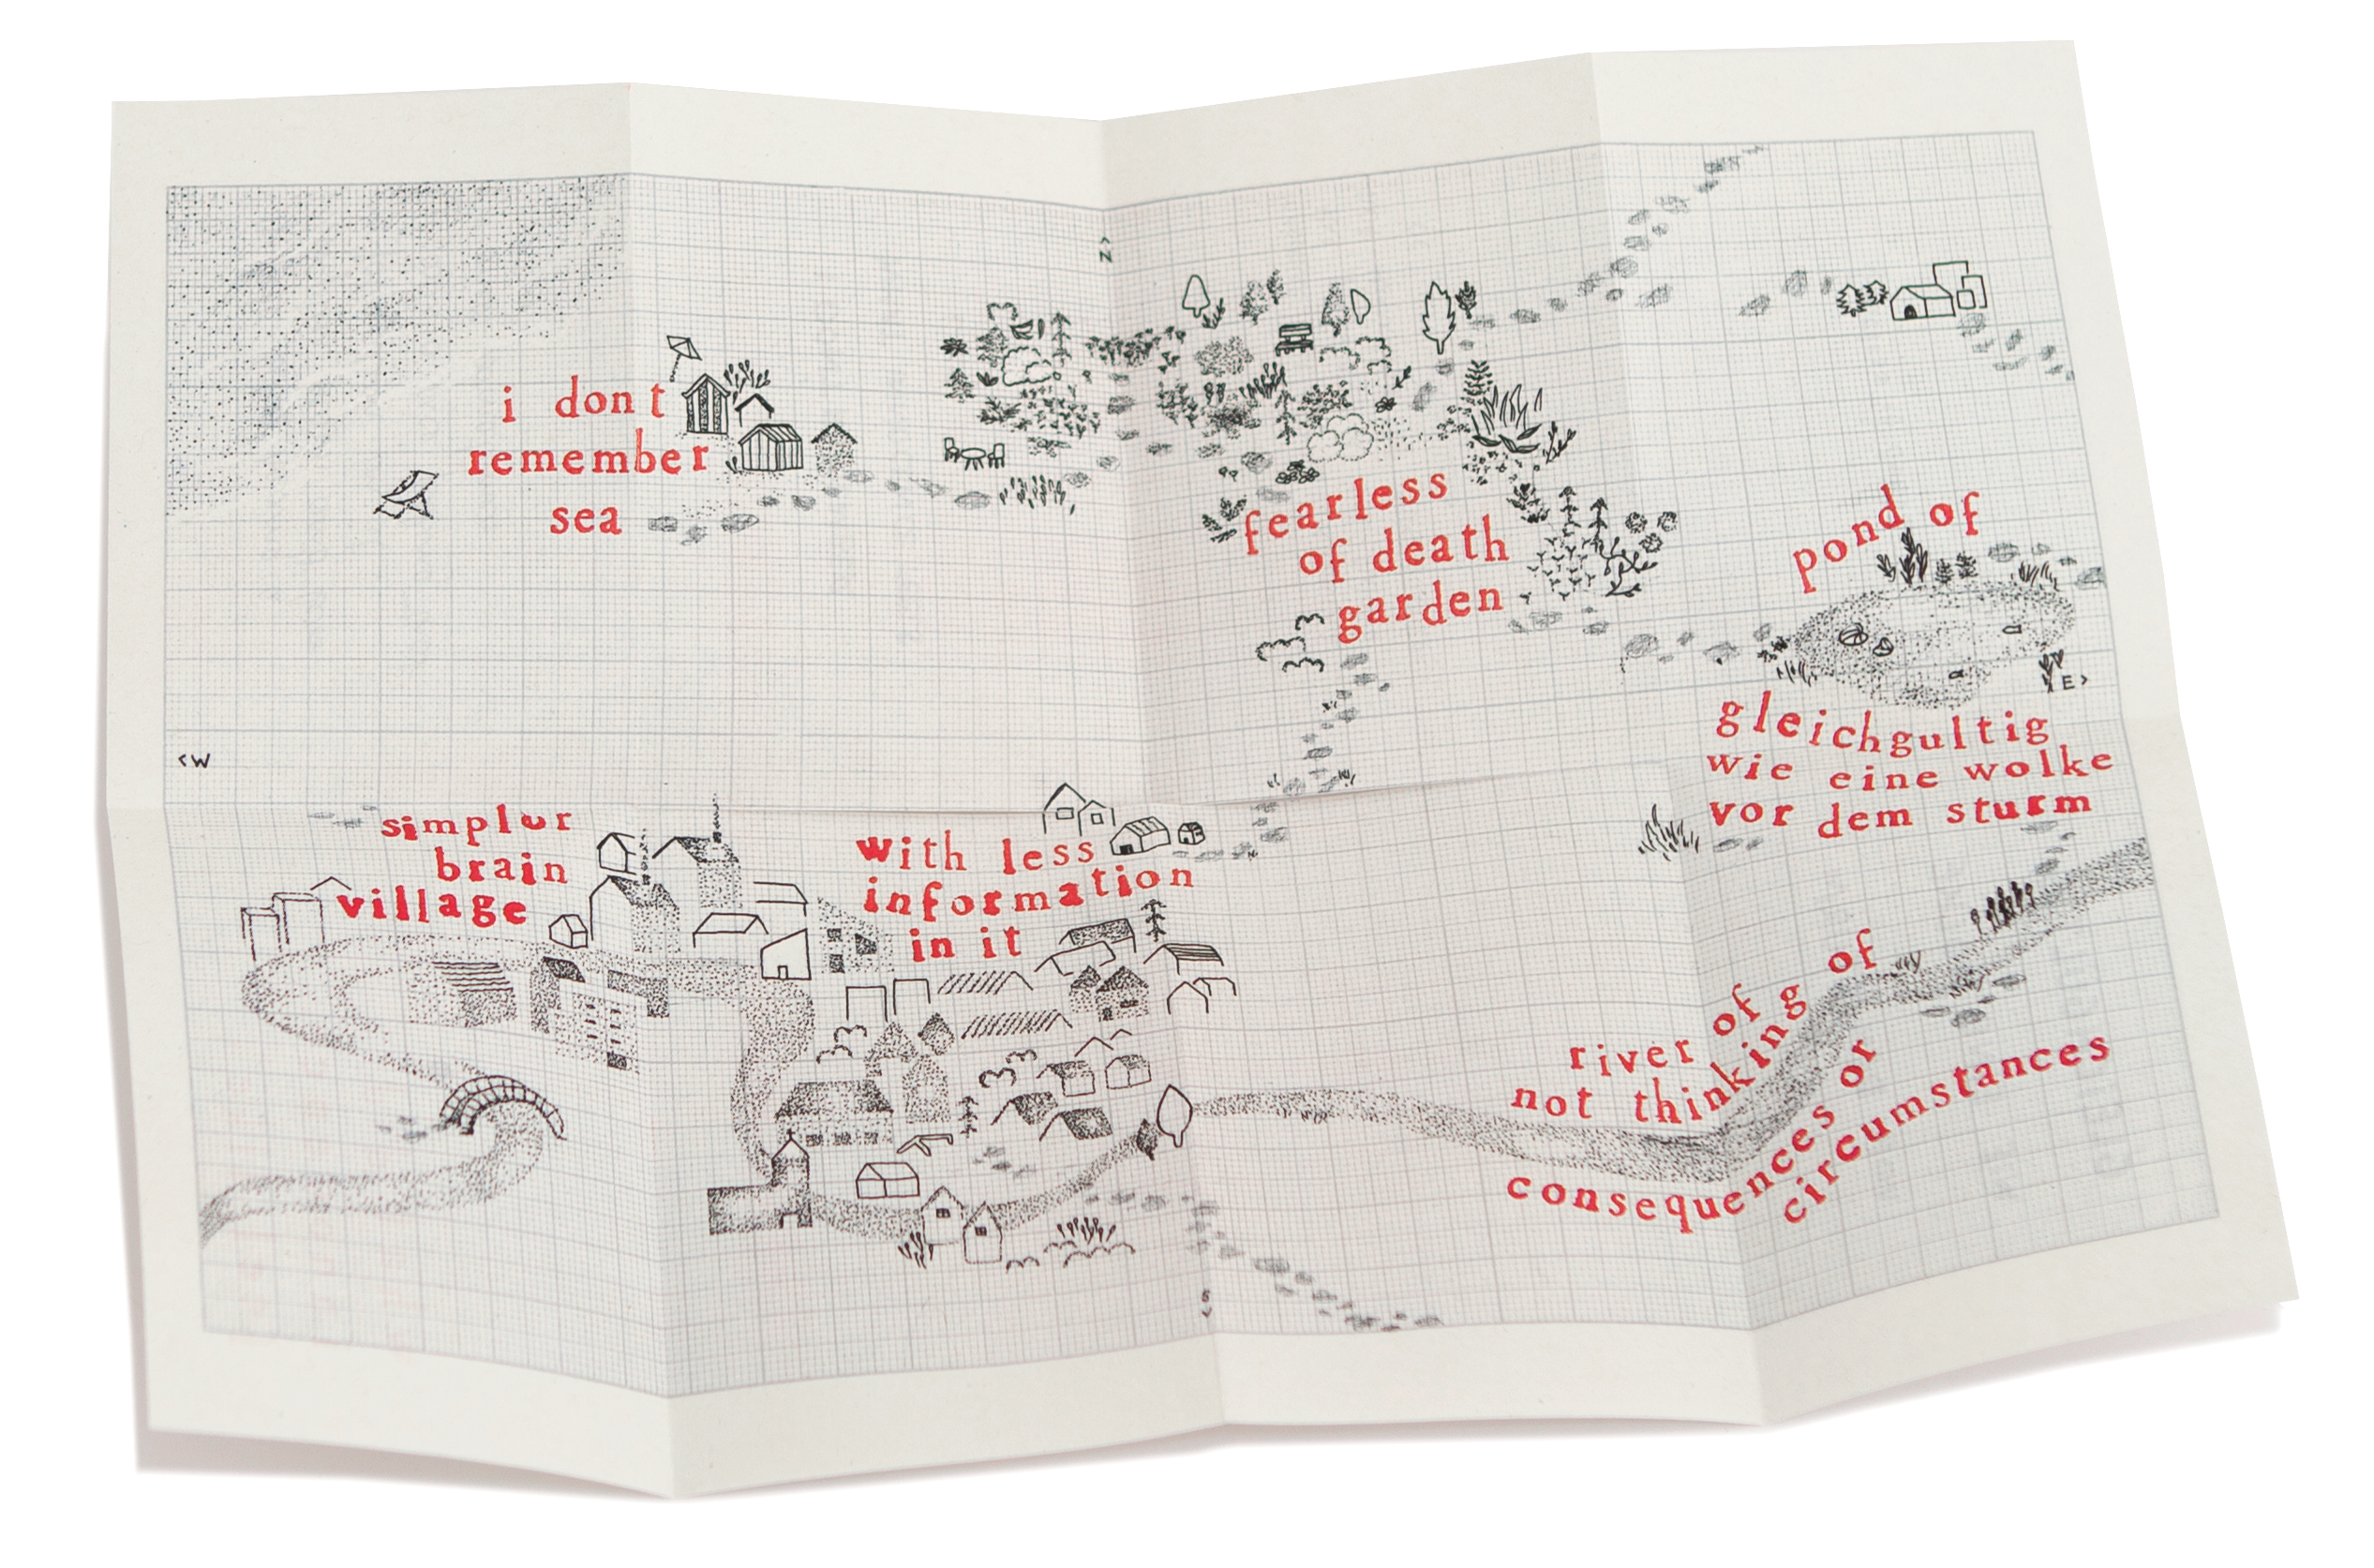 ^
N
i dont
remember
sea
fearless
of death
garden
pond of
E>
gleichgultig
wie eine wolke
vor dem sturm
<W
simplur
brain
village
with less
information
in it
river of of
not thinking
consequences or
circumstances
S
v